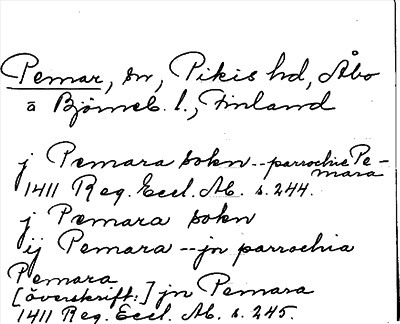 Pemar, sn, Pikis hd, Åbo
a Björneb. l., Finland
j Pemara sokn -- parrochie Pe-
mara
1411 Reg. Eccl. Ab. s. 244.
j Pemara sokn
ij Pemara -- jn parrochia
Pemara
[överskrift:] jn Pemara
1411 Reg. Eccl. Ab. s. 245.